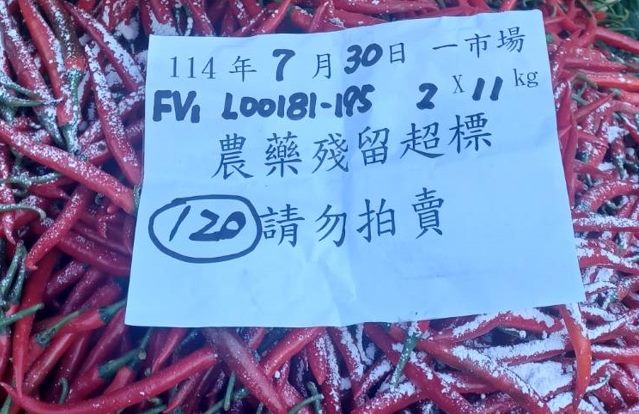 114 年 7 月 30 日 一市場
FV1 L00181-195 2 X 11 kg
農藥殘留超標
120 請勿拍賣